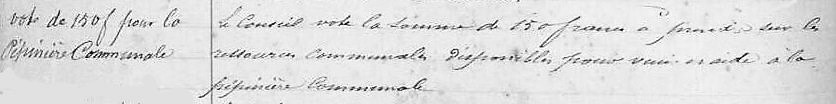 vote de 150f pour la
Pépinière Communale
Le Conseil vote la somme de 150 francs à prendre sur les
ressources communales disponibles pour venir en aide à la
pépinière Communale